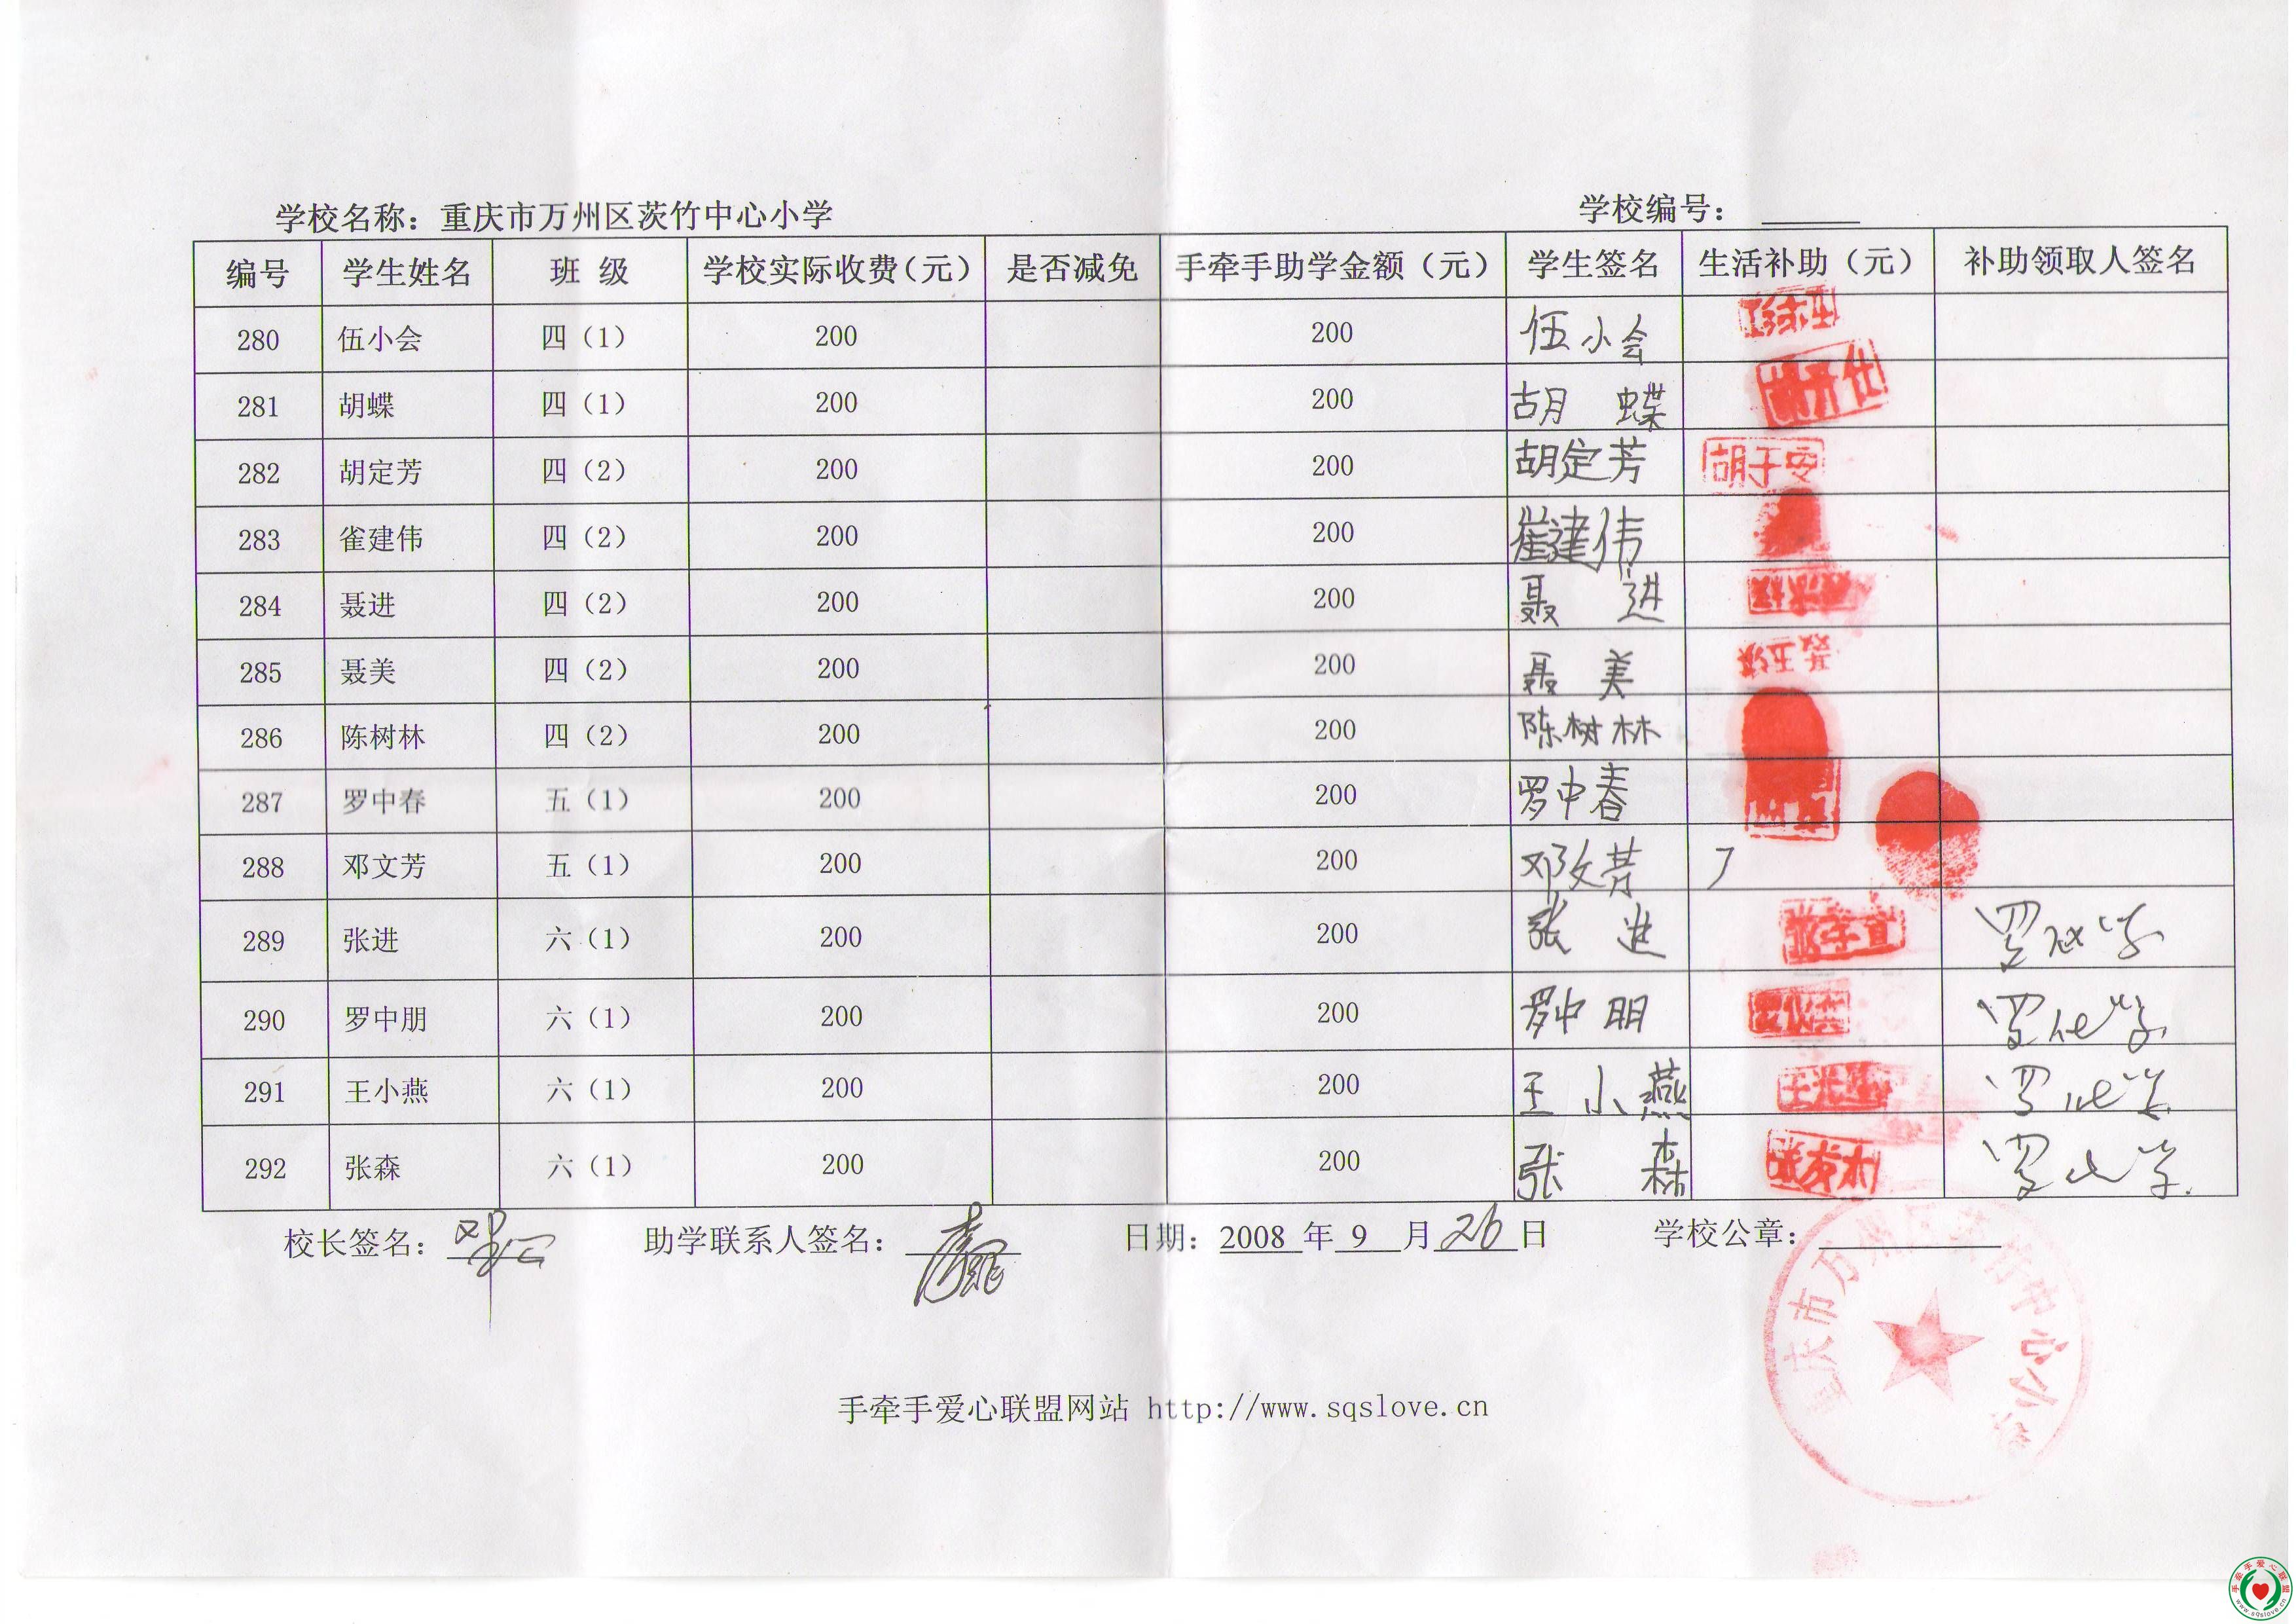 学校名称：重庆市万州区茨竹中心小学 学校编号：
编号 学生姓名 班 级 学校实际收费（元） 是否减免 手牵手助学金额（元） 学生签名 生活补助（元） 补助领取人签名
280 伍小会 四（1） 200 200 伍小会
281 胡蝶 四（1） 200 200 胡蝶
282 胡定芳 四（2） 200 200 胡定芳
283 雀建伟 四（2） 200 200 崔建伟
284 聂进 四（2） 200 200 聂进
285 聂美 四（2） 200 200 聂美
286 陈树林 四（2） 200 200 陈树林
287 罗中春 五（1） 200 200 罗中春
288 邓文芳 五（1） 200 200 邓文芳
289 张进 六（1） 200 200 张进
290 罗中朋 六（1） 200 200 罗中明
291 王小燕 六（1） 200 200 王小燕
292 张森 六（1） 200 200 张森
校长签名： 助学联系人签名： 日期：2008 年 9 月 26 日 学校公章：
重庆市万州区茨竹中心小学
手牵手爱心联盟网站 http://www.sqslove.cn
手牵手爱心联盟
www.sqslove.cn